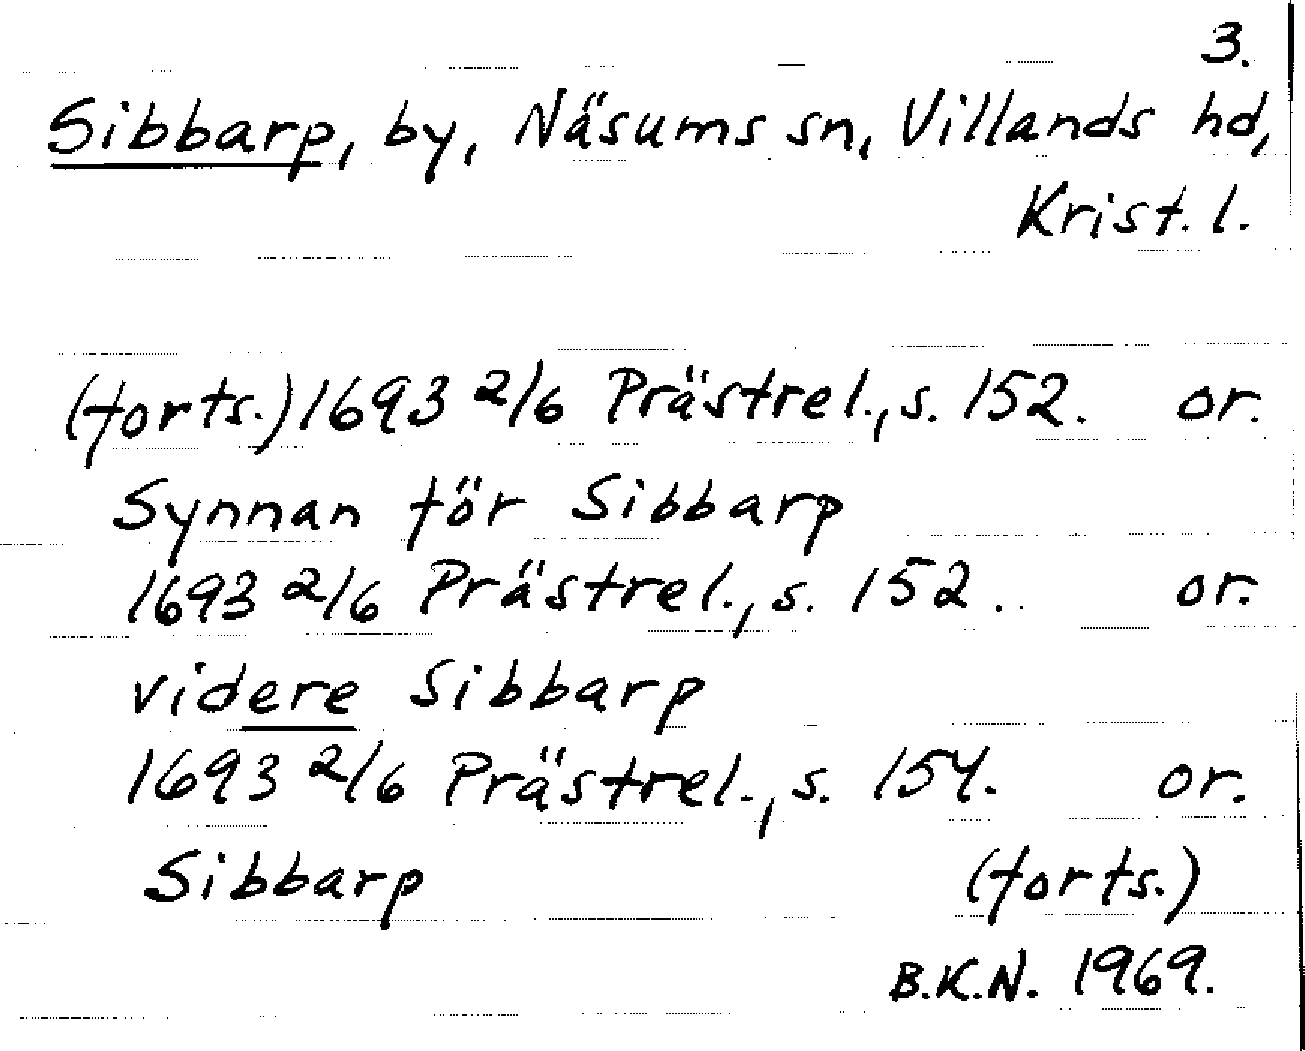 3.
Sibbarp, by, Näsums sn, Villands hd,
Krist. l.
(forts.) 1693 2/6 Prästrel., s. 152. or.
Synnan för Sibbarp
1693 2/6 Prästrel., s. 152.. or.
videre Sibbarp
1693 2/6 Prästrel., s. 154. or.
Sibbarp (forts.)
B.K.N. 1969.